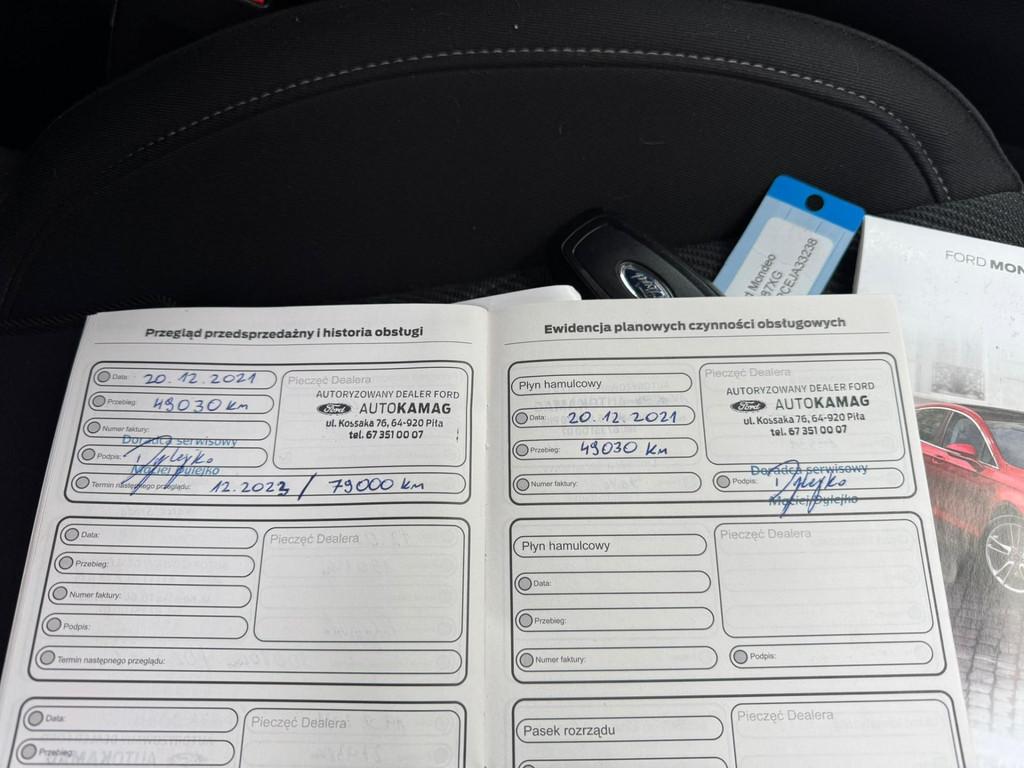 d Mondeo
87XG
CEJA33238
FORD MON
Przegląd przedsprzedażny i historia obsługi
Data: 20.12.2021
Przebieg: 49030 km
Numer faktury:
Doradca serwisowy
Podpis:
Maciej Dylejko
Termin następnego przeglądu: 12.2023 / 79000 km
Pieczęć Dealera
AUTORYZOWANY DEALER FORD
Ford AUTOKAMAG
ul. Kossaka 76, 64-920 Piła
tel. 67 351 00 07
Data:
Przebieg:
Numer faktury:
Podpis:
Termin następnego przeglądu:
Pieczęć Dealera
Data:
Przebieg:
Pieczęć Dealera
Ewidencja planowych czynności obsługowych
Płyn hamulcowy
Data: 20.12.2021
Przebieg: 49030 km
Numer faktury:
Pieczęć Dealera
AUTORYZOWANY DEALER FORD
Ford AUTOKAMAG
ul. Kossaka 76, 64-920 Piła
tel. 67 351 00 07
Doradca serwisowy
Podpis:
Maciej Dylejko
Płyn hamulcowy
Data:
Przebieg:
Numer faktury:
Pieczęć Dealera
Podpis:
Pasek rozrządu
Pieczęć Dealera